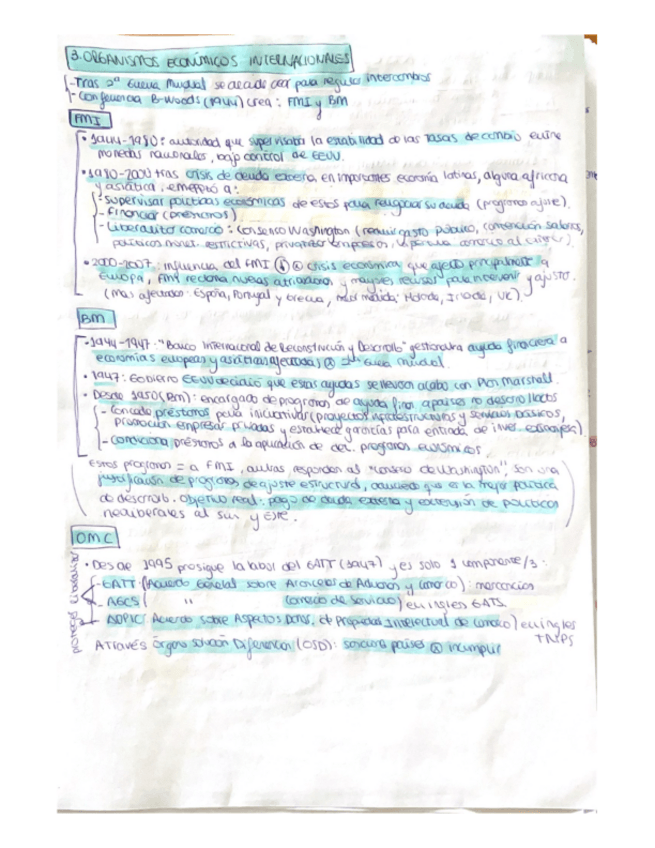 3. ORGANISMOS ECONÓMICOS INTERNACIONALES
- Tras 2ª Guerra Mundial se decide crear para regular intercambios
- Conferencia B-Woods (1944) crea: FMI y BM
FMI
• 1944-1980: autoridad que supervisaba la estabilidad de las tasas de cambio entre
monedas nacionales, bajo control de EEUU.
• 1980-2000 tras crisis de deuda externa en importantes economía latinas, alguna africana
y asiática, empezó a:
- Supervisar políticas económicas de estos para renegociar su deuda (programa ajuste).
- Financiar (préstamos)
- Liberalizar comercio: Consenso Washington (reducir gasto público, contención salarios,
políticas monet. restrictivas, privatizar empresas y apertura comercio al exterior)
• 2000-2007: influencia del FMI ↓ crisis económica que afectó principalmente a
Europa, FMI reclama nuevas atribuciones y mayores recursos para intervenir y ajusto.
(Más afectados: España, Portugal y Grecia, menor medida: Holanda, Irlanda, UK)
BM
• 1944-1947: "Banco Internacional de Reconstrucción y Desarrollo" gestionaba ayuda financiera a
economías europeas y asiáticas afectadas 2ª Guerra Mundial.
• 1947: Gobierno EEUU decidió que estas ayudas se llevaran a cabo con Plan Marshall.
• Desde 1950 (BM): encargado de programas de ayuda finan. a países no desarrollados
- Concede préstamos para iniciativas (proyectos infraestructuras y servicios básicos,
promoción empresas privadas y establece garantías para entrada de inver. extranjera)
- Condiciona préstamos a la aplicación de det. programas económicos.
Estos programas = a FMI, ambas responden al "Consenso de Washington" son una
justificación de programas de ajuste estructural, que es la mejor política
de desarrollo. Objetivo real: pago de deuda externa y extensión de políticas
neoliberales al sur y este.
OMC
• Desde 1995 prosigue la labor del GATT (1947) y es solo 1 componente/3:
- GATT (Acuerdo General sobre Aranceles de Aduanas y Comercio): mercancías
- AGCS ( " Comercio de Servicios) en inglés GATS
- ADPIC Acuerdo sobre Aspectos de Propiedad Intelectual de Comercio) en inglés
TRIPS
A través Órgano Solución Diferencias (OSD): sanciona países incumplir